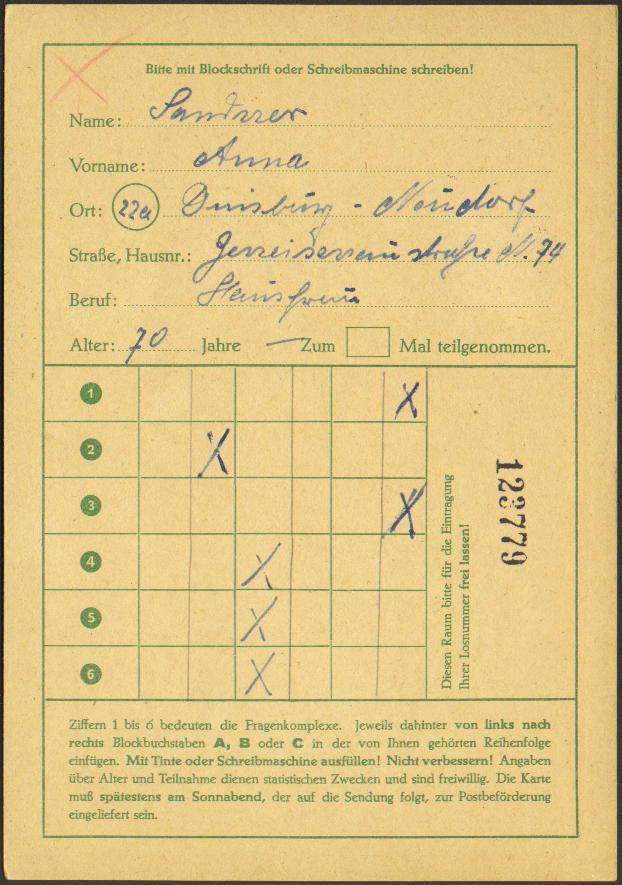 Bitte mit Blockschrift oder Schreibmaschine schreiben!
Name:
Vorname: Anna
Ort: 22a Duisburg - Neudorf
Straße, Hausnr.: 74
Beruf: Hausfrau
Alter: 70 Jahre — Zum Mal teilgenommen.
1 X
2 X
3 X
4 X
5 X
6 X
Diesen Raum bitte für die Eintragung
Ihrer Losnummer frei lassen!
123779
Ziffern 1 bis 6 bedeuten die Fragenkomplexe. Jeweils dahinter von links nach
rechts Blockbuchstaben A, B oder C in der von Ihnen gehörten Reihenfolge
einfügen. Mit Tinte oder Schreibmaschine ausfüllen! Nicht verbessern! Angaben
über Alter und Teilnahme dienen statistischen Zwecken und sind freiwillig. Die Karte
muß spätestens am Sonnabend, der auf die Sendung folgt, zur Postbeförderung
eingeliefert sein.